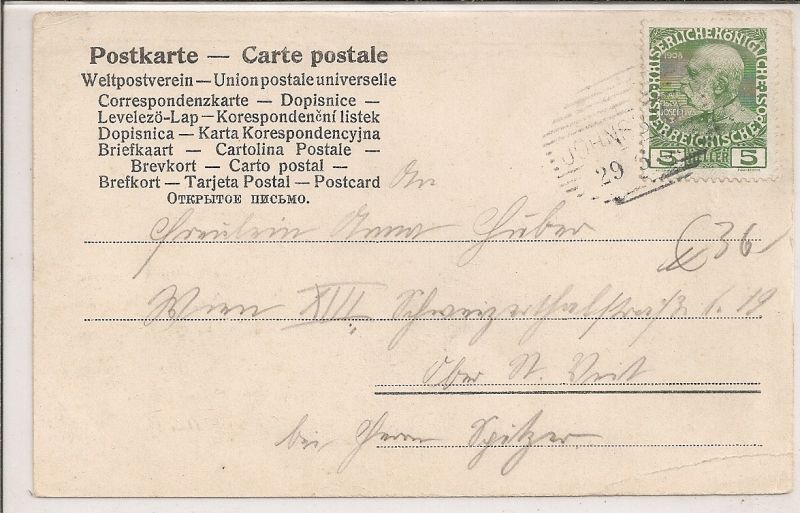 Postkarte — Carte postale
Weltpostverein — Union postale universelle
Correspondenzkarte — Dopisnice —
Levelező-Lap — Korespondenční lístek
Dopisnica — Karta Korespondencyjna
Briefkaart — Cartolina Postale —
Brevkort — Carto postal —
Brefkort — Tarjeta Postal — Postcard
Открытое письмо.
KAISERLICHE KÖNIGLICHE
ÖSTERREICHISCHE POST
1908
5 HELLER 5
29
An
Fräulein Anna Huber
36
Wien XIII. Schweizerthalstraße 19
Ober St. Veit
bei Herrn Spitzer